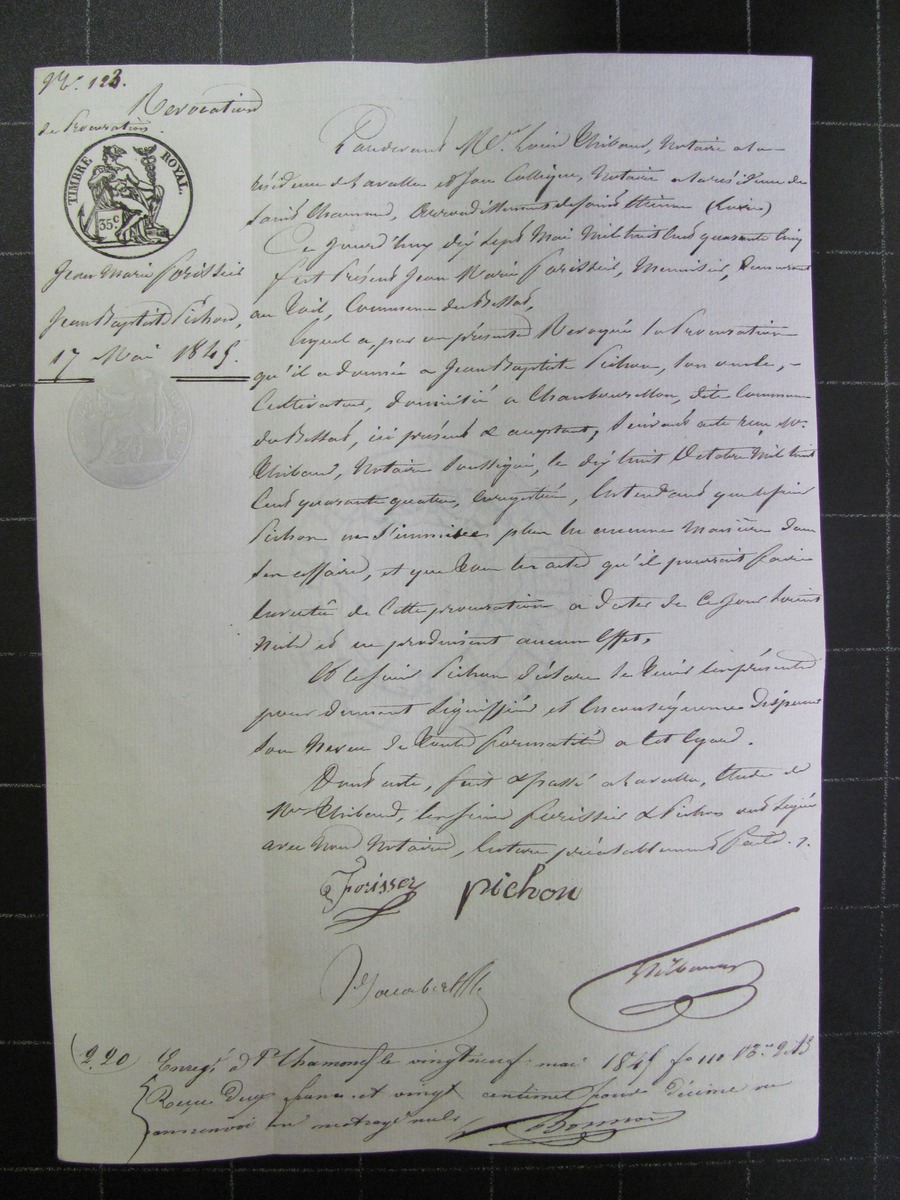 N.° 123.
Revocation
de Procuration.
TIMBRE ROYAL.
35 c
Jean Marie Forissier
Jean Baptiste Pichon,
17 Mai 1845.
Pardevant M.es Louis Thibaud, Notaire à la
résidence de Lavalla et Notaire à la résidence de
Saint Chamond, arrondissement de Saint Etienne (Loire)
Ce jourd'huy dix sept Mai Mil huit cent quarante cinq
fut présent Jean Marie Forissier, Menuisier, Demeurant
au Toil, Commune du Bessat,
Lequel a, par ces présentes Revoqué la Procuration
qu'il a donnée à Jean Baptiste Pichon, son oncle,
Cultivateur, domicilié à dite Commune
du Bessat, ici présent & acceptant, Suivant acte reçu M.e
Thibaud, Notaire Soussigné, le dix huit Octobre Mil huit
Cent quarante quatre, enregistré, Entendant que le sieur
Pichon ne s'immisce plus en aucune Manière dans
ses affaires, et que tous les actes qu'il pourrait faire
En vertu de Cette procuration à dater de ce jour soient
Nuls et ne produisent aucun Effet,
Et le sieur Pichon déclare se tenir le présent
pour dument Signiffié et En conséquence dispense
son Neveu de toute formalité à cet égard.
Dont acte, fait & passé à Lavalla, Etude de
M.e Thibaud, les sieurs Forissier & Pichon ont signé
avec Nous Notaires, lecture préalablement faite.
Forisser pichon
Thibaud
(2.20) Enreg.é à S.t Chamond le vingt neuf mai 1845 f.o 110
Reçu Deux francs et vingt centimes pour décime
sans renvoi ni mot rayé nul